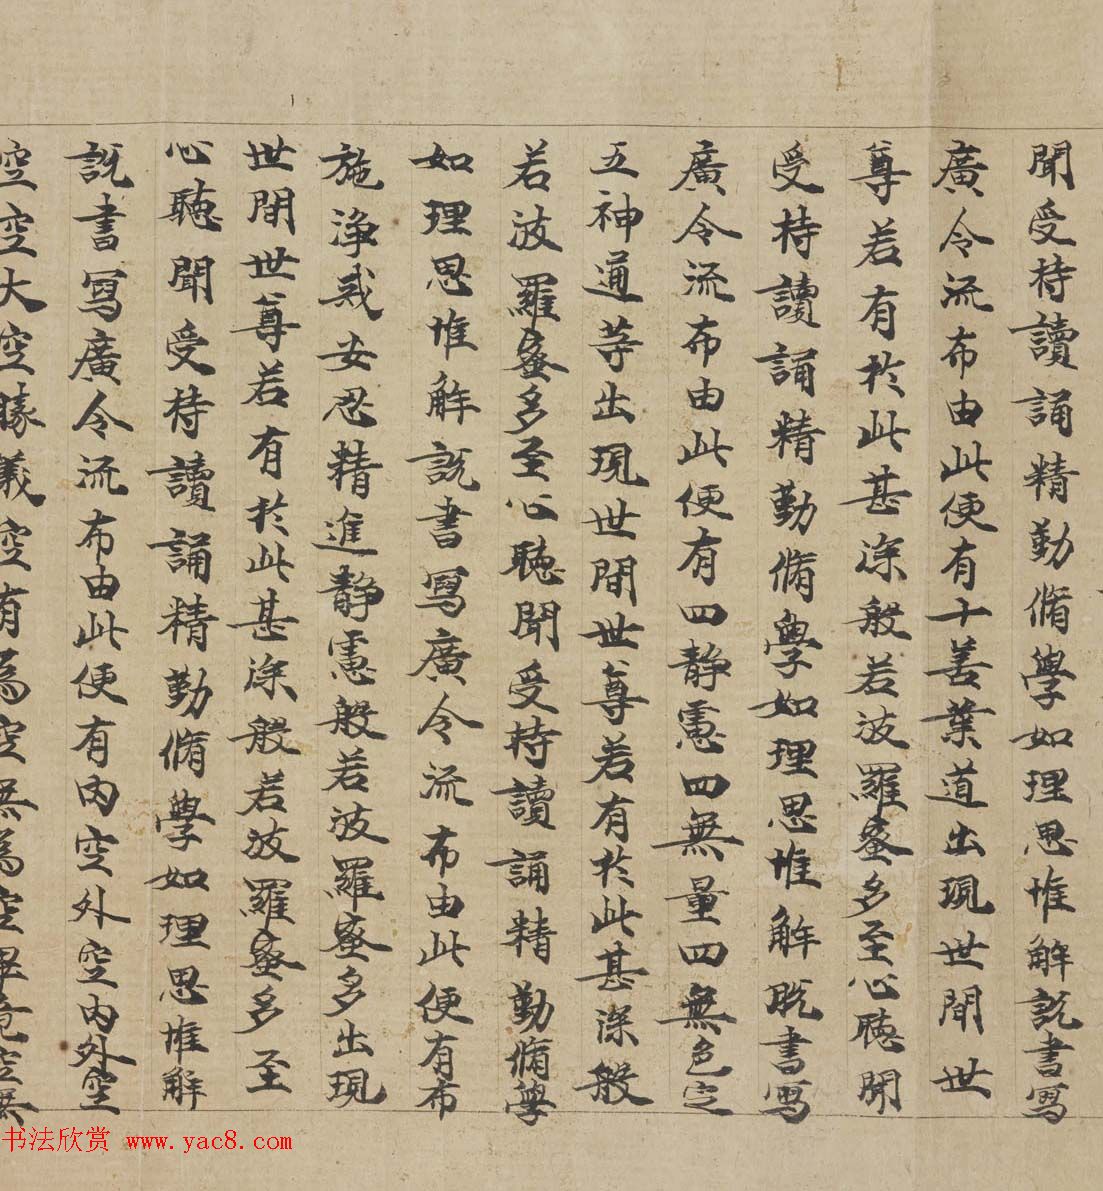 聞受持讀誦精勤脩學如理思惟解說書寫
廣令流布由此便有十善業道出現世間世
尊若有於此甚深般若波羅蜜多至心聽聞
受持讀誦精勤脩學如理思惟解脫書寫
廣令流布由此便有四靜慮四無量四無色定
五神通等出現世間世尊若有於此甚深般
若波羅蜜多至心聽聞受持讀誦精勤脩學
如理思惟解說書寫廣令流布由此便有布
施淨戒安忍精進靜慮般若波羅蜜多出現
世間世尊若有於此甚深般若波羅蜜多至
心聽聞受持讀誦精勤脩學如理思惟解
說書寫廣令流布由此便有內空外空內外空
空空大空勝義空有為空無為空畢竟空無
书法欣赏 www.yac8.com